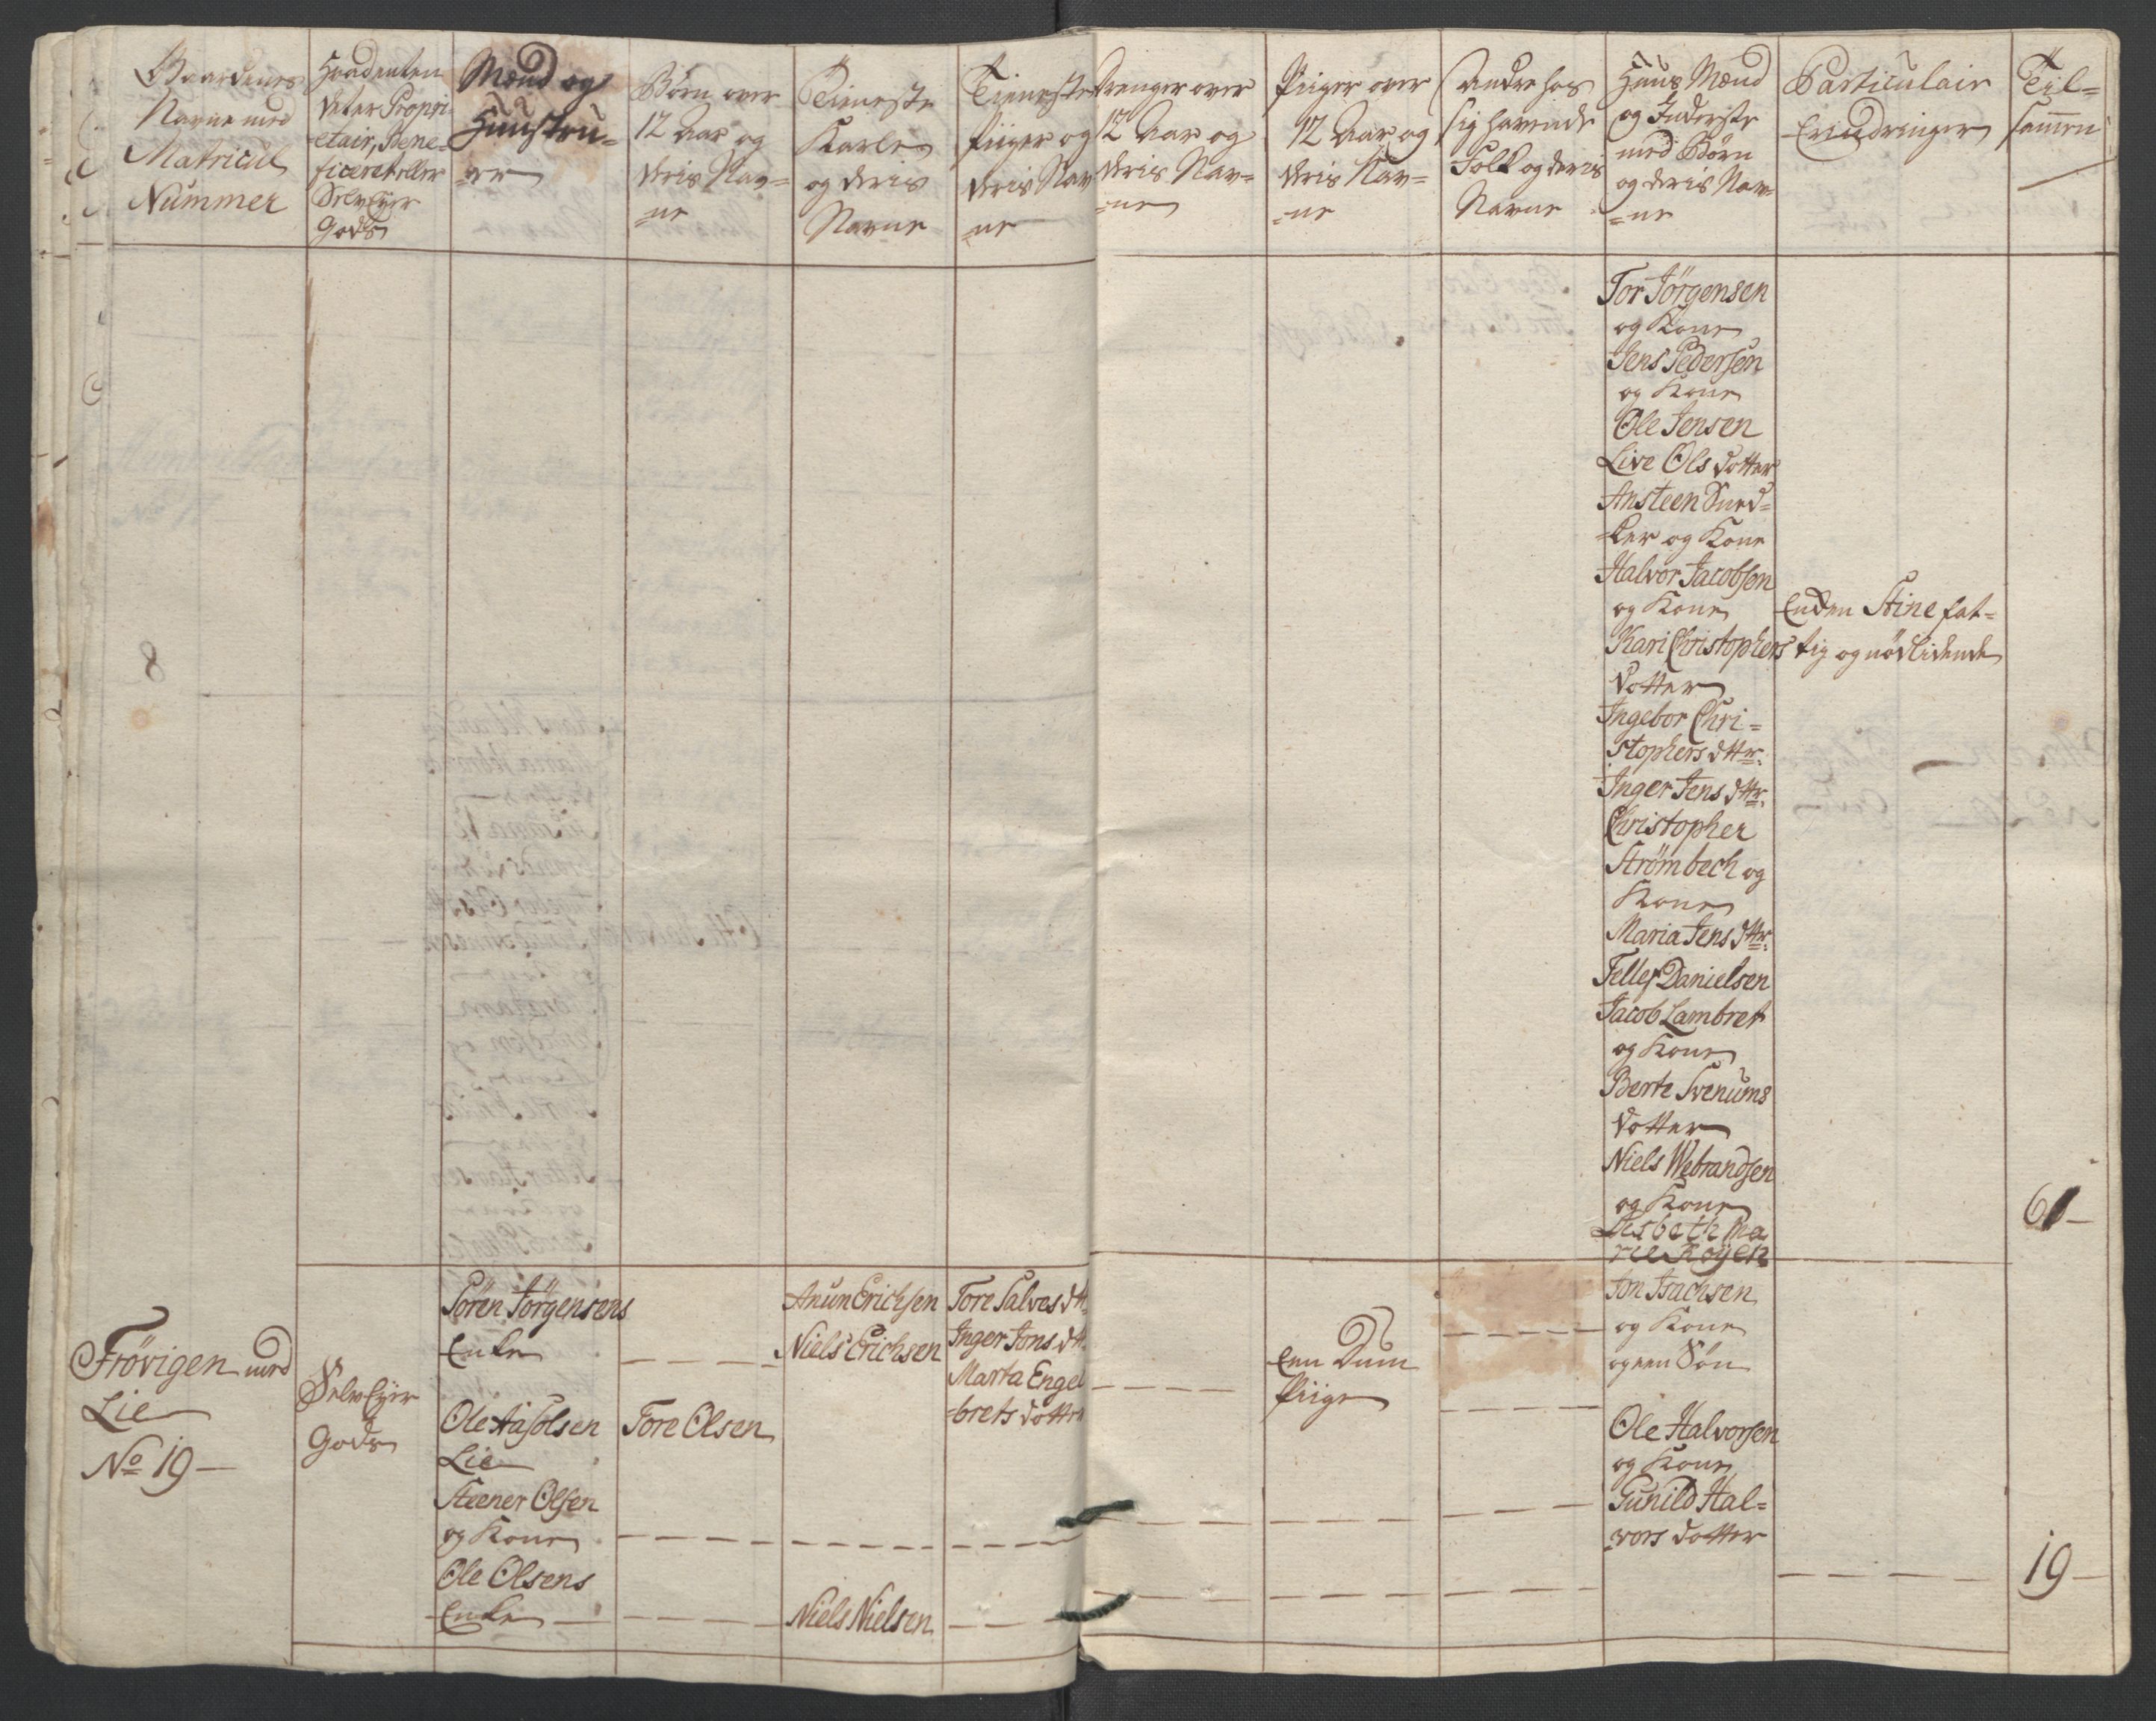 Gaardenes
Navne med
Matricul
Nummer
Hvad enten
det er Propri
etair, Bene-
ficeret eller
SelvEyer
Gods
Mænd og
Hunstru-
=er
Børn over
12 Aar og
deris Nav=
=ne
Tieneste
Karle
og deris
Navne
Tieneste
Piiger og
deris Nav
=ne
Drenger over
12 Aar og
deris Nav=
=ne
Piiger over
12 Aar og
deris Nav=
=ne
Andre hos
sig havende
Folk og deris
Navne
Huus Mænd
og Inderste
med Børn
og deris Nav=
=ne
Particulair
Erindringer
Til=
sammen
Tor Jörgensen
og Kone
Jens Pedersen
og Kone
Ole Jensen
Live Ols dotter
Ansteen Sned=
=ker og Kone
Halvor Jacobsen
og Kone
Kari Christophers
dotter
Ingebor Chri=
stophers dttr.
Inger Jens dttr.
Christopher
Strömbech og
Kone
Maria Jens dttr.
Tellef Danielsen
Jacob Lambret
og Kone
Berte Svenums
dotter
Niels Webrandsen
og Kone
Lisbeth Ma
rie Röyen
Enken Stine fat=
tig og nødlidende
61
8
Frövigen med
Lie
No 19
SelvEyer
Gods
Sören Jörgensens
Enke
Ole Aasolsen
Lie
Steener Olsen
og Kone
Ole Olsens
Enke
Tore Olsen
Anun Erichsen
Niels Erichsen
Niels Nielsen
Tore Salves dtt.
Inger Jons dtt.
Marta Engel
=brets dotter
Een Dum
Piige
Jon Isachsen
og Kone
og een Søn
Ole Halvorsen
og Kone
Gunild Hal=
vors dotter
19